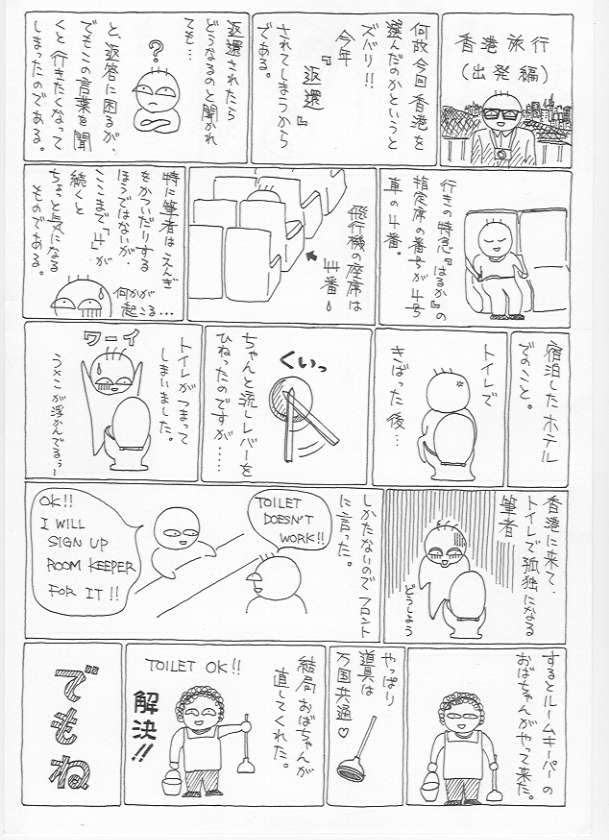 香港旅行
(出発編)
何故今回香港を
選んだのかというと
ズバリ!!
今年
『返還』
されてしまうから
である。
返還されたら
どうなるのと聞かれ
ても…
?
と、返答に困るが、
でもこの言葉を聞
くと行きたくなって
しまったのである。
行きの特急『はるか』の
指定席の番号が4号
車の4番。
飛行機の座席は
44番!
特に筆者はえんぎ
をかついだりする
ほうではないが、
ここまで「4」が
続くと
ちょっと気になる
ものである。
何かが
起こる…
宿泊したホテル
でのこと。
トイレで
きばった後…
くいっ
ちゃんと流しレバーを
ひねったのですが……
ワーイ
トイレがつまって
しまいました。
う×こが浮かんでるぅ〜
香港に来て、
トイレで孤独になる
筆者
どうしよう
TOILET
DOESN'T
WORK!!
しかたないのでフロント
に言った。
OK!!
I WILL
SIGN UP
ROOM KEEPER
FOR IT!!
するとルームキーパーの
おばちゃんがやって来た。
やっぱり
道具は
万国共通♡
TOILET OK!!
結局おばちゃんが
直してくれた。
解決!!
でもね